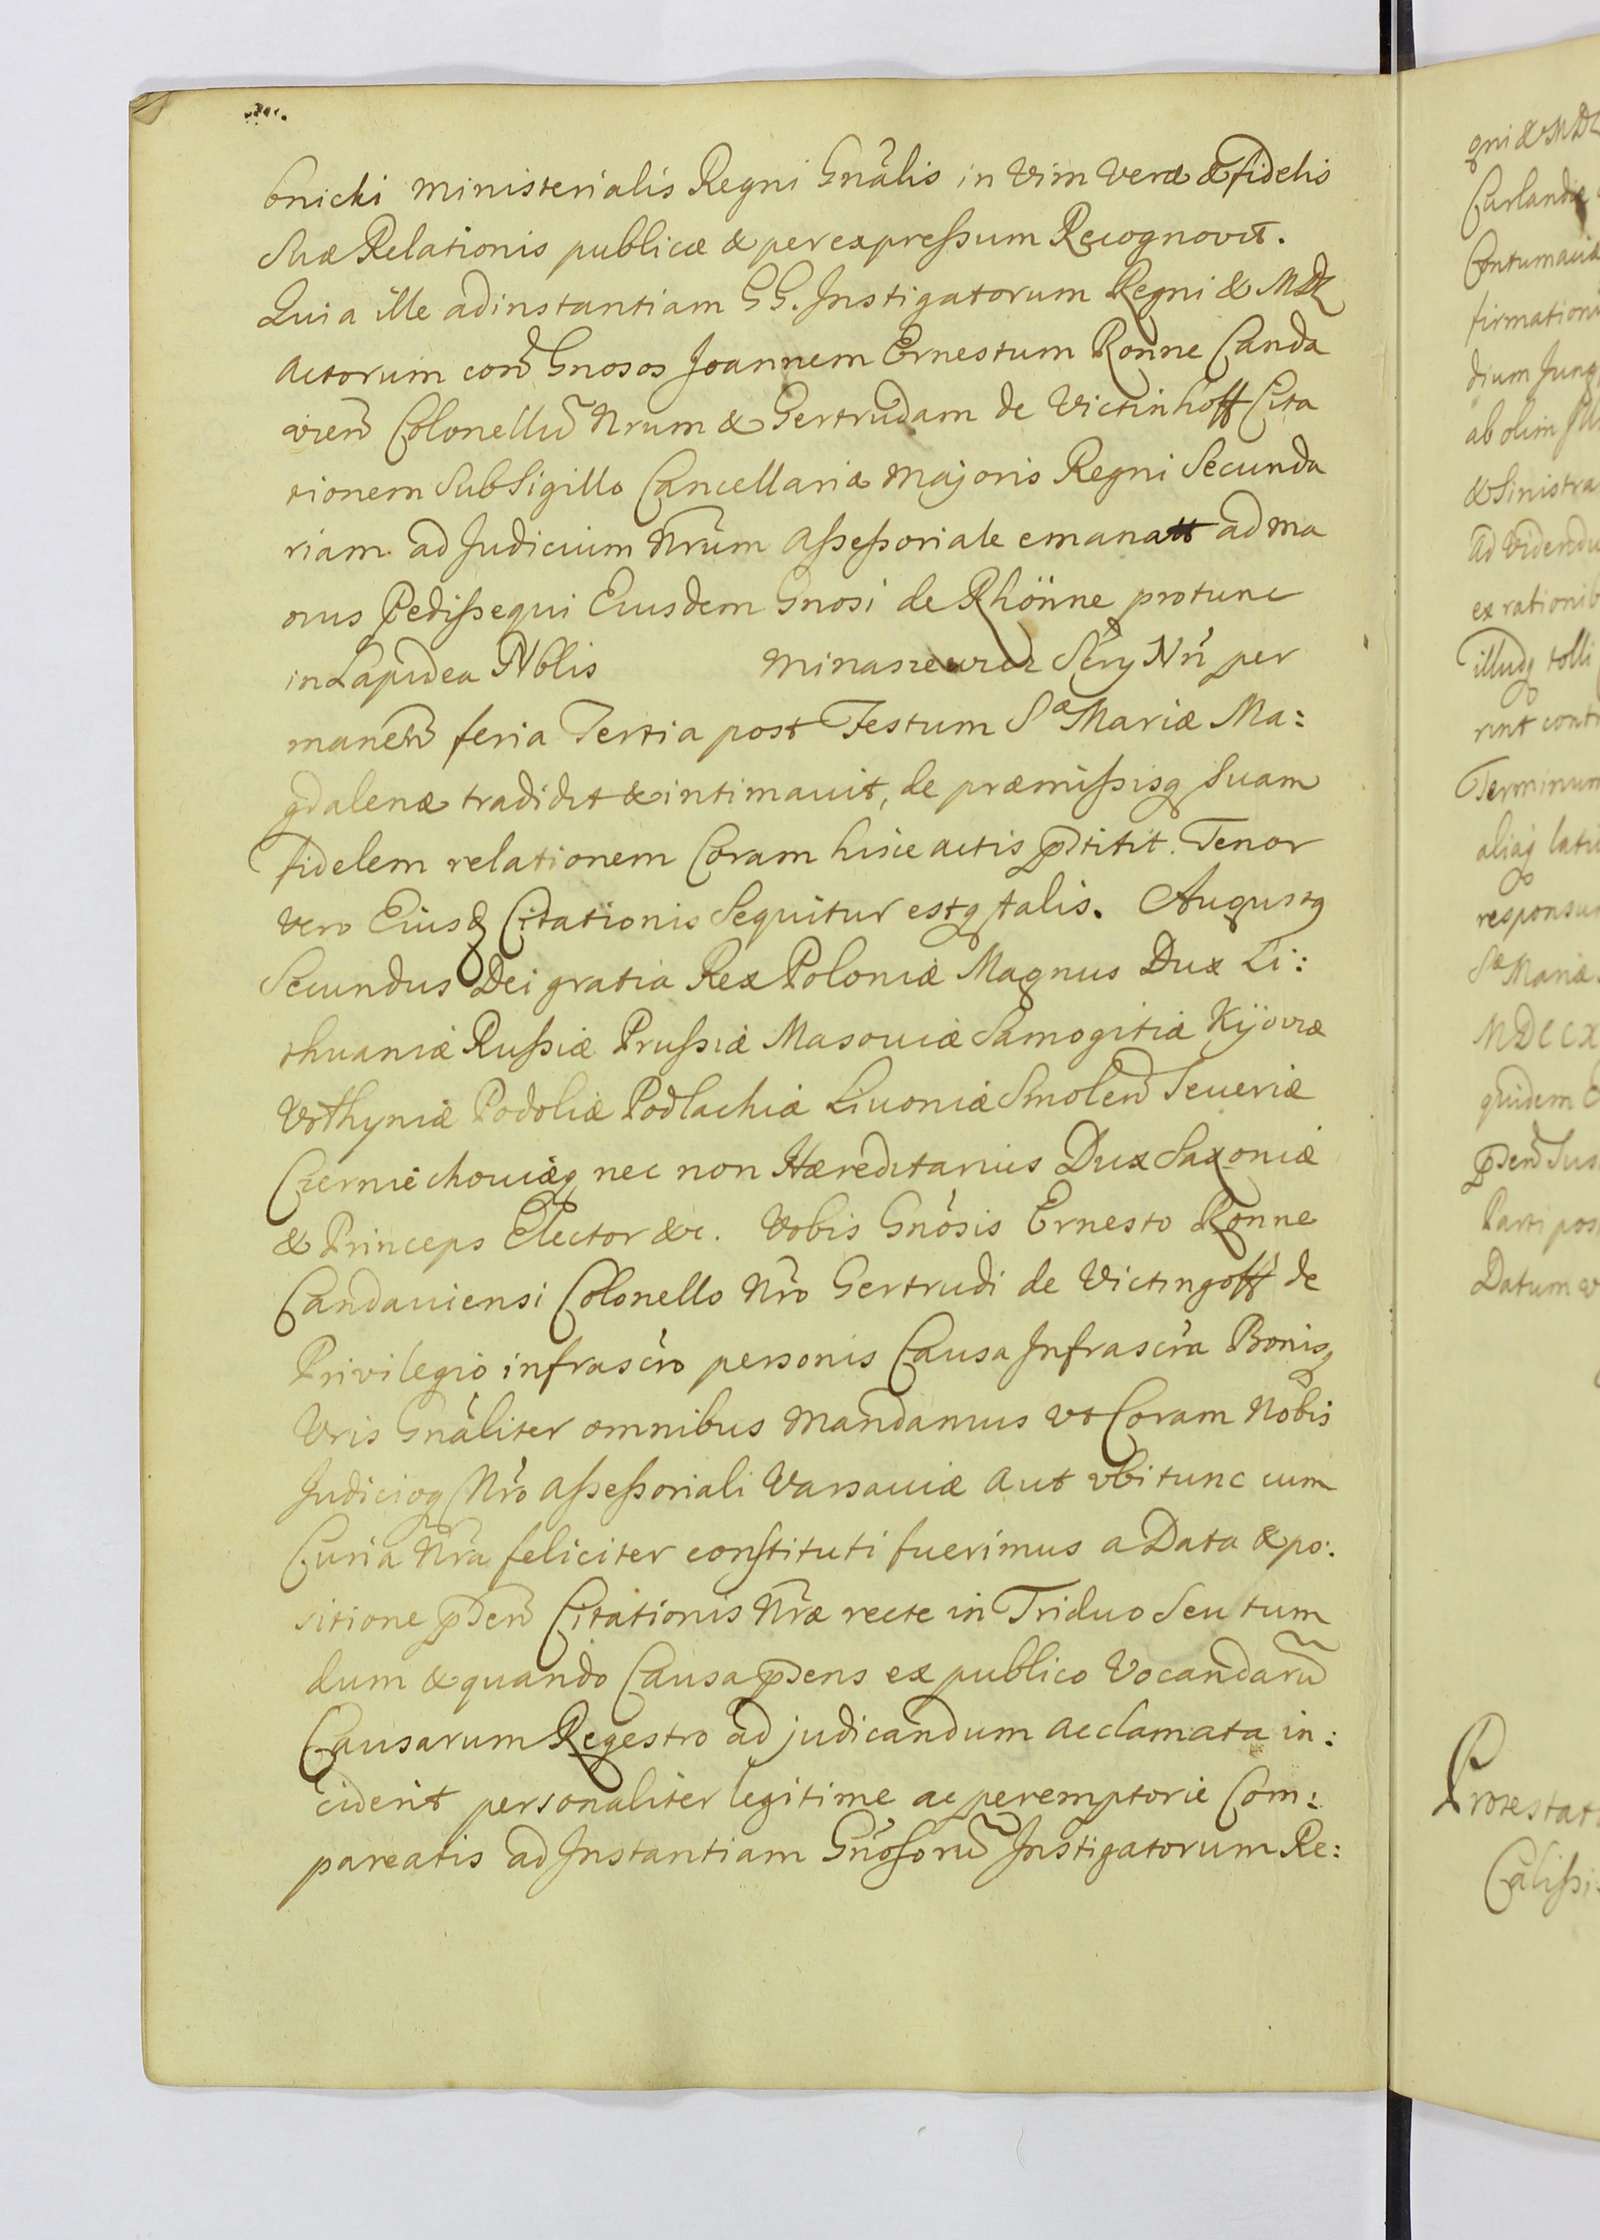 bnicki ministerialis Regni Gnãlis in Vim Veræ & fidelis
Suæ Relationis publicæ & per expressum Recognovit.
Quia ille ad instantiam GG. Instigatorum Regni & MDL
actorum con͠ Gnosos Joannem Ernestum Ronne Canda
vien͠ Colonellũ Nrum & Gertrudam de Victinhoff Cita
tionem Sub Sigillo Cancellariæ Majoris Regni Secunda
riam ad Judicium Nrũm Assessoriale emanatt ad ma
nus Pedissequi Eiusdem Gnosi de Rhönne protunc
in Lapidea Nblis Minasiewicz Sery Nrĩ per
manen͠ feria Tertia post Festum Sæ Mariæ Ma:
gdalenæ tradidit & intimavit, de præmissisq suam
fidelem relationem Coram hisce actis p̃stitit. Tenor
vero Eiusd Citationis Sequitur estq talis. Augustq
Secundus Dei gratia Rex Poloniæ Magnus Dux Li:
thuaniæ Russiæ Prussiæ Masoviæ Samogitiæ Kijoviæ
Volhyniæ Podoliæ Podlachiæ Livoniæ Smolen͠ Severiæ
Czerniechoviæq nec non Hæreditarius Dux Saxoniæ
& Princeps Elector &c. Vobis Gnõsis Ernesto Ronne
Candaviensi Colonello Nr̃o Gertrudi de Victingoff de
Privilegio infrascr̃o personis Causa Infrascr̃a Bonisq
Vris Gnãliter omnibus mandamus vt Coram Nobis
Judicioq Nr̃o Assessoriali Varsaviæ aut vbi tunc cum
Curia Nr̃a feliciter constituti fuerimus a Data & po:
sitione p̃sen͠ Citationis Nr̃æ recte in Triduo Seu tum
dum & quando Causa p̃sens ex publico Vocandarũ
Causarum Regestro ad judicandum acclamata in:
ciderit personaliter legitime ac peremptorie Com:
pareatis ad Instantiam Gnõsorũ Instigatorum Re:
Curlandiæ
Contumacia
firmation
dium Jung
ab olim
& Sinistra
ad videndu
ex rationib
illudq tolli
rint contr
Terminum
aliaq lati
responsur
Sæ Mariæ
MDCCX
quidem
p̃sen͠ Jus
Parti pos
Datum
Protestat
Calissi